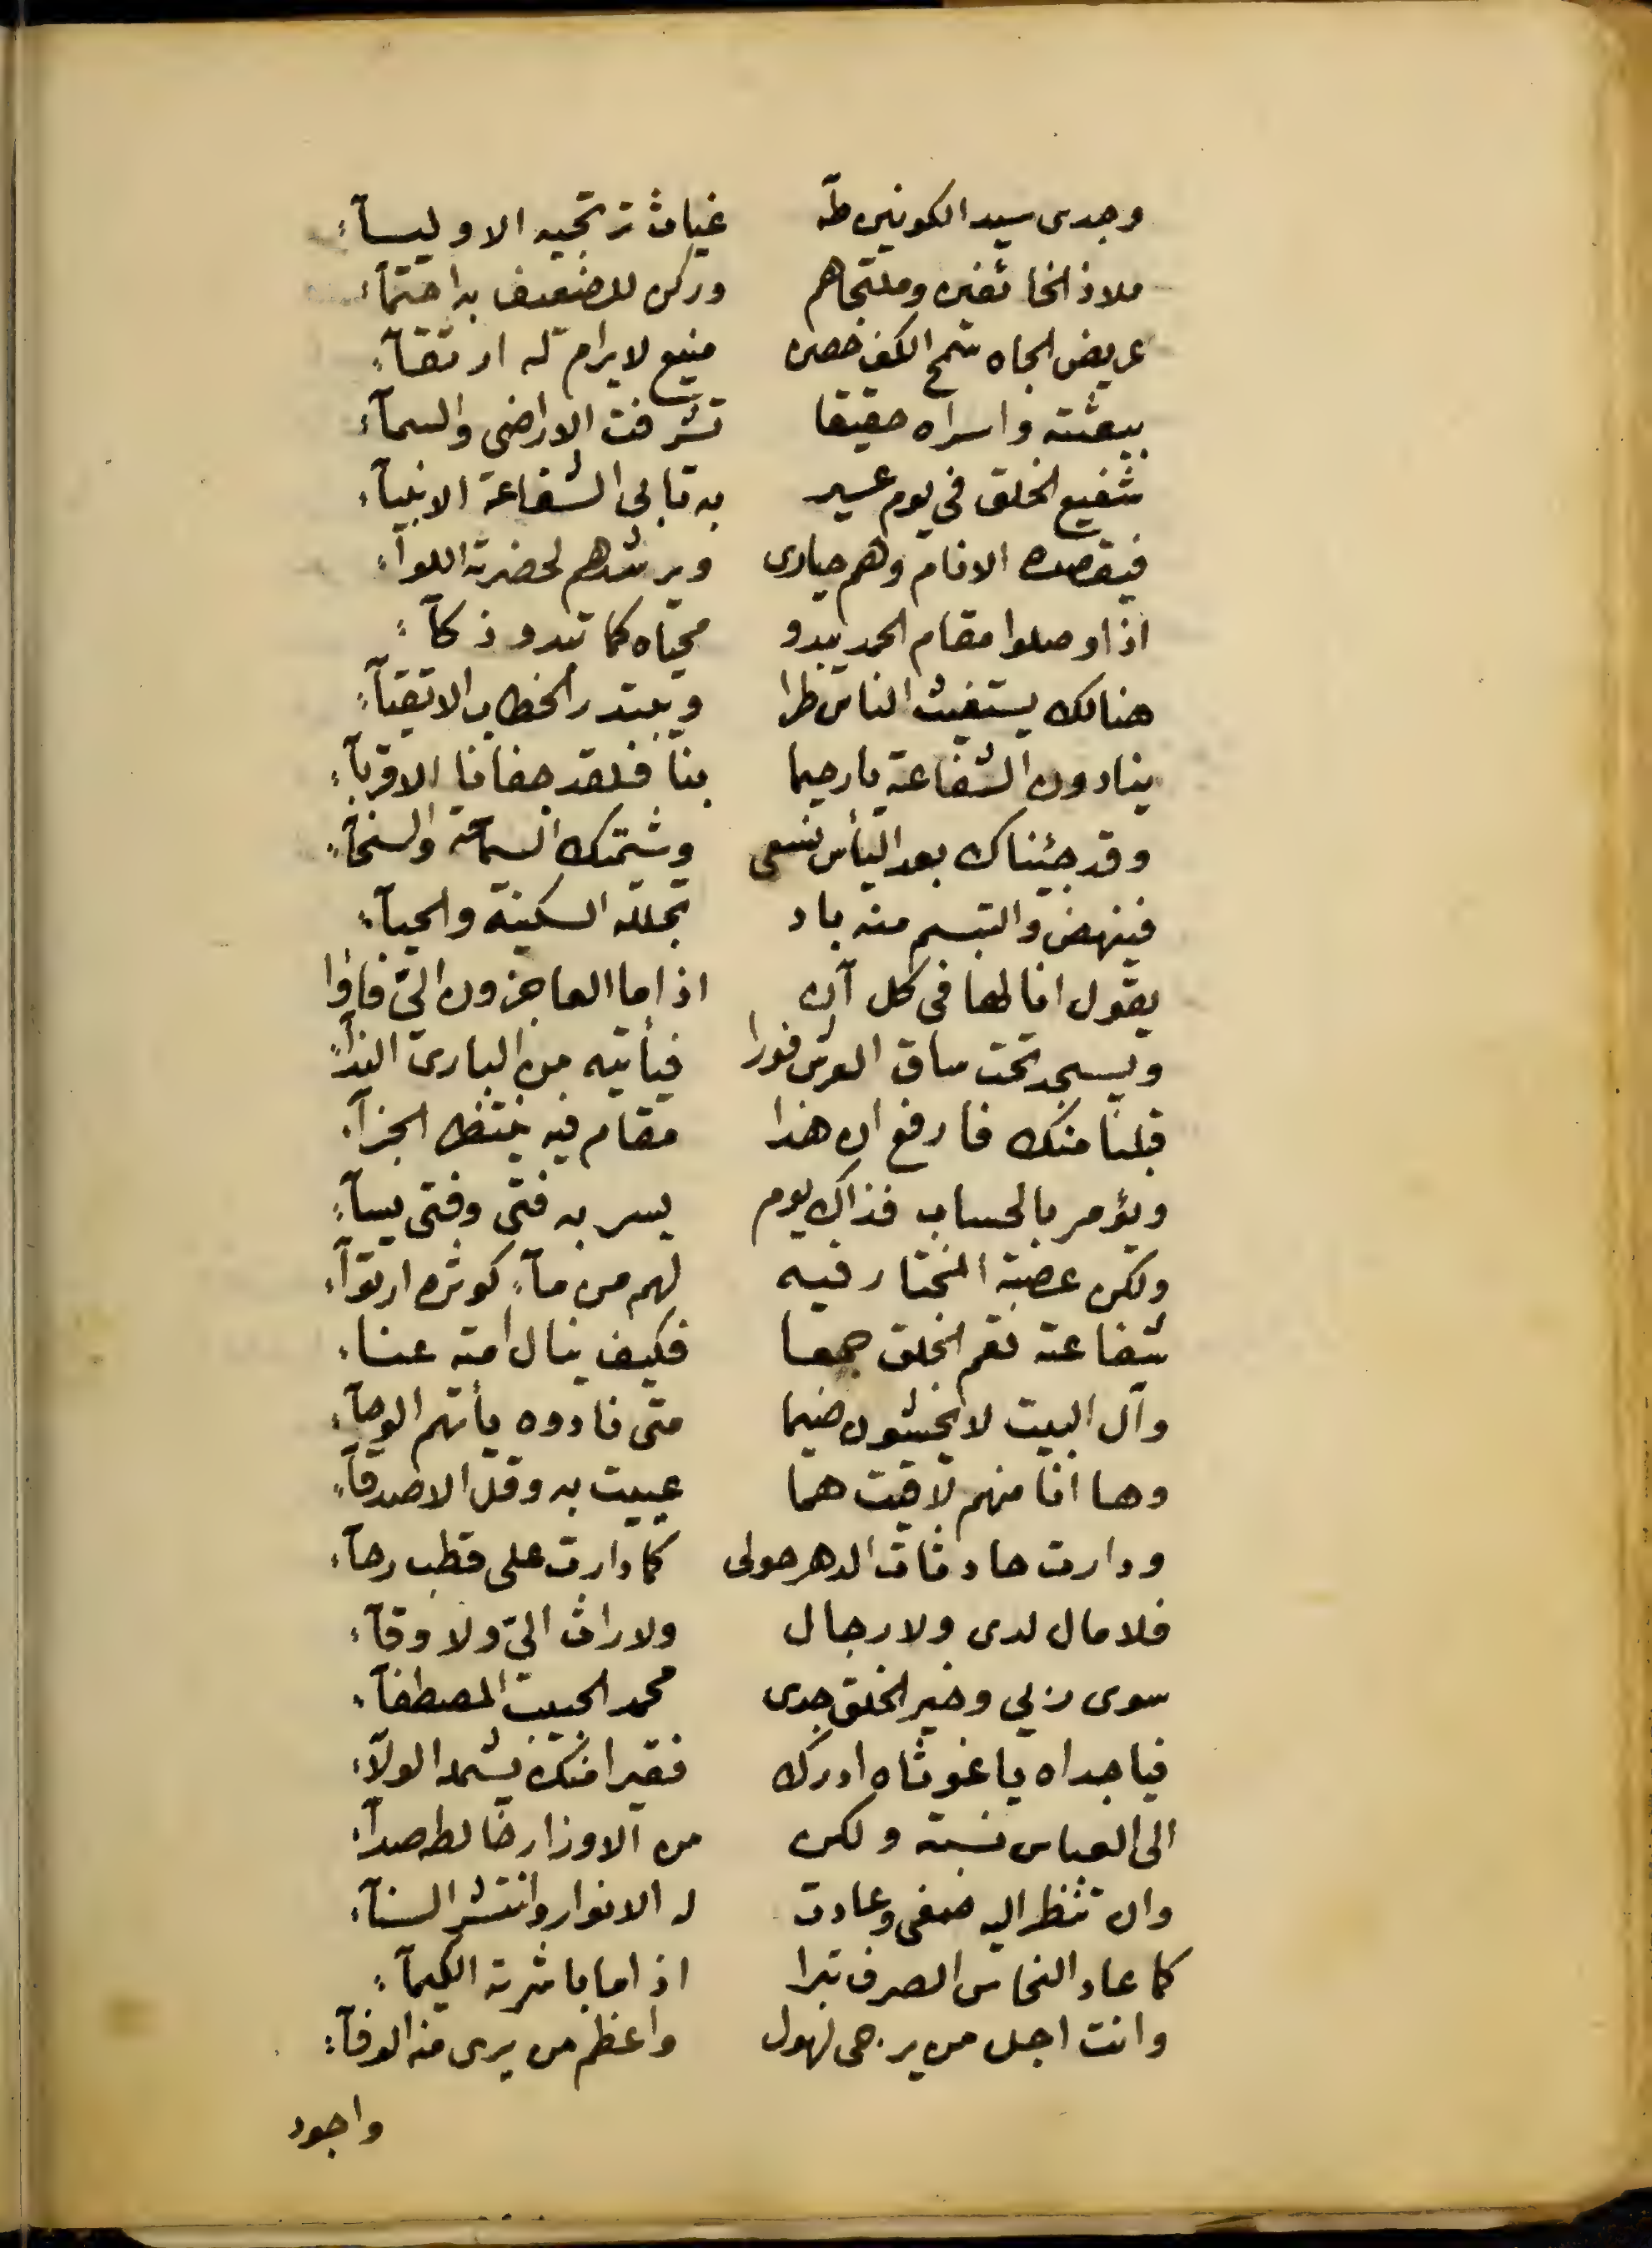 وجدى سيد الكونين طه غياث ترتجيه الاوليآء
ملاذ الخائفين وملتجاهم وركن للضعيف به احتمآء
عريض الجاه سمح الكف حصن منيع لا يرام له ارتقآء
ببعثته واسراه حقيقا تشرفت الاراضى والسمآء
شفيع الخلق في يوم عسير به تابى الشفاعة الانبيآء
فيقصده الانام وهم حيارى ويرشدهم لحضرته اللوآء
اذا وصلوا مقام الحمد يبدو محياه كما تبدو ذكآء
هنالك يستغيث الناس طرا ويبتدر الخطاب الاتقيآء
ينادون الشفاعة يا رحيما بنا فلقد جفانا الاقربآء
وقد جئناك بعد اليأس نسعى وشيمتك السماحة والسخآء
فينهض والتبسم منه باد تجلله السكينة والحيآء
يقول انا لها فى كل آن اذا ما العاجزون الىّ فاؤا
ويسجد تحت ساق العرش فورا فيأتيه من البارى الندآء
قبلنا منك فارفع ان هذا مقام فيه ينتظر الجزآء
ويؤمر بالحساب فذاك يوم يسر به فتى وفتى يسآء
ولكن عصبة المختار فيه لهم من مآء كوثره ارتوآء
شفاعته تعم الخلق جمعا فكيف ينال امته عناء
وآل البيت لا يخشون ضيما متى نادوه يأتهم الوحآء
وها انا منهم لاقيت هما عييت به وقل الاصدقآء
ودارت حادثات الدهر حولى كما دارت على قطب رحآء
فلا مال لدى ولا رجال ولا راث الىّ ولا وقآء
سوى ربي وخير الخلق جدى محمد الحبيب المصطفآء
فيا جداه يا غوثاه ادرك فقيرا منك يشمله الولآء
الى العباس نسبته ولكن من الاوزار خالطه صدآء
وان تنظر اليه صفى وعادت له الانوار وانتشر السنآء
كما عاد النحاس الصرف تبرا اذا ما باشرته الكيميآء
وانت اجل من يرجى لهول واعظم من يرى منه الوفآء
واجود